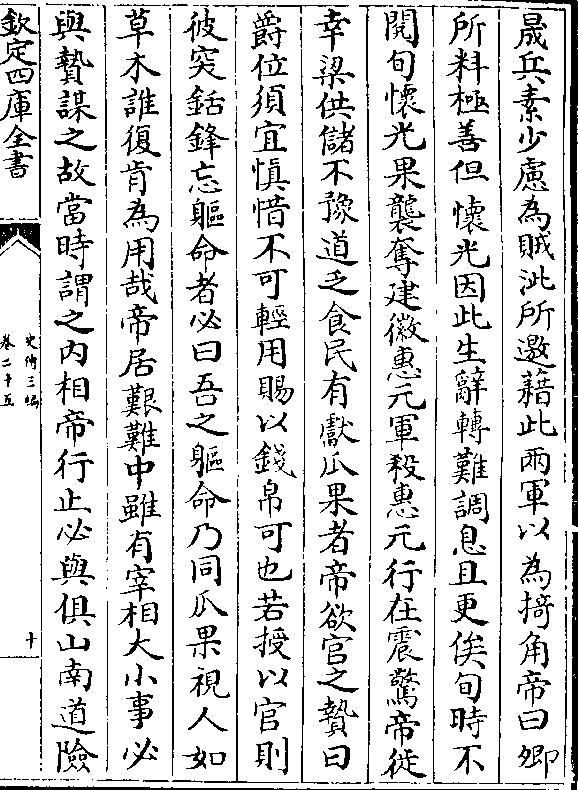 晟兵素少慮為賊泚所邀藉此兩軍以為掎角帝曰卿
所料極善但懷光因此生辭轉難調息且更俟旬時不
閱旬懷光果襲奪建徽惠元軍殺惠元行在震驚帝徙
幸梁供儲不豫道乏食民有獻瓜果者帝欲官之贄曰
爵位須宜慎惜不可輕用賜以錢帛可也若授以官則
彼突銛鋒忘軀命者必曰吾之軀命乃同瓜果視人如
草木誰復肯為用哉帝居艱難中雖有宰相大小事必
與贄謀之故當時謂之內相帝行止必與俱山南道險
欽定四庫全書
史傳三編
卷二十五
十